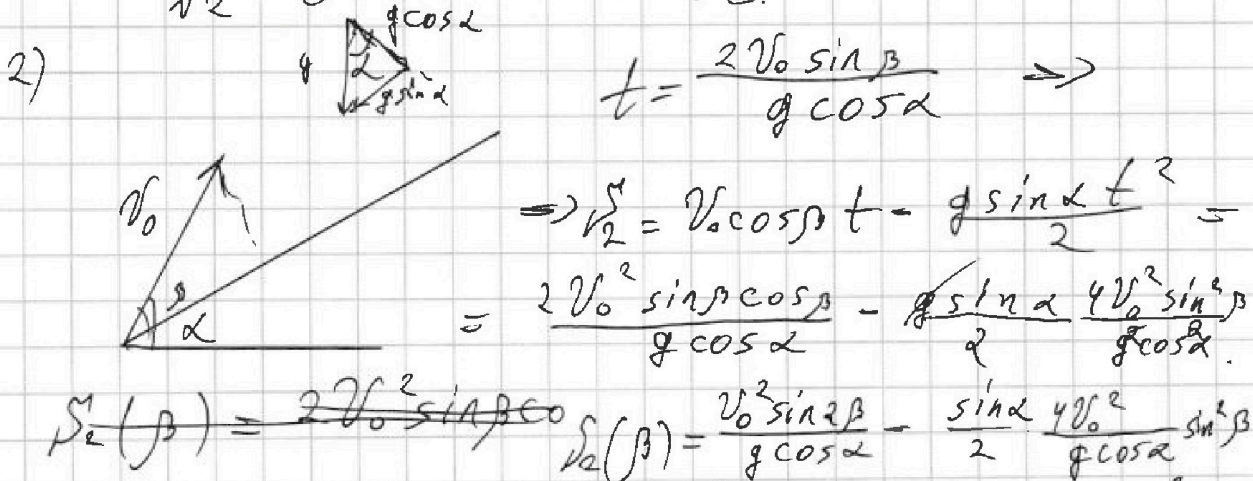 2) g g cosα α g sinα t = 2V₀ sinβ / (g cosα) =>
V₀ β α => S₂ = V₀ cosβ t - g sinα t² / 2 =
= 2V₀² sinβ cosβ / (g cosα) - g sinα / 2 · 4V₀² sin²β / (g² cos²α).
S₂(β) = 2V₀² sinβ co S₂(β) = V₀² sin2β / (g cosα) - sinα / 2 · 4V₀² / (g cosα) sin²β